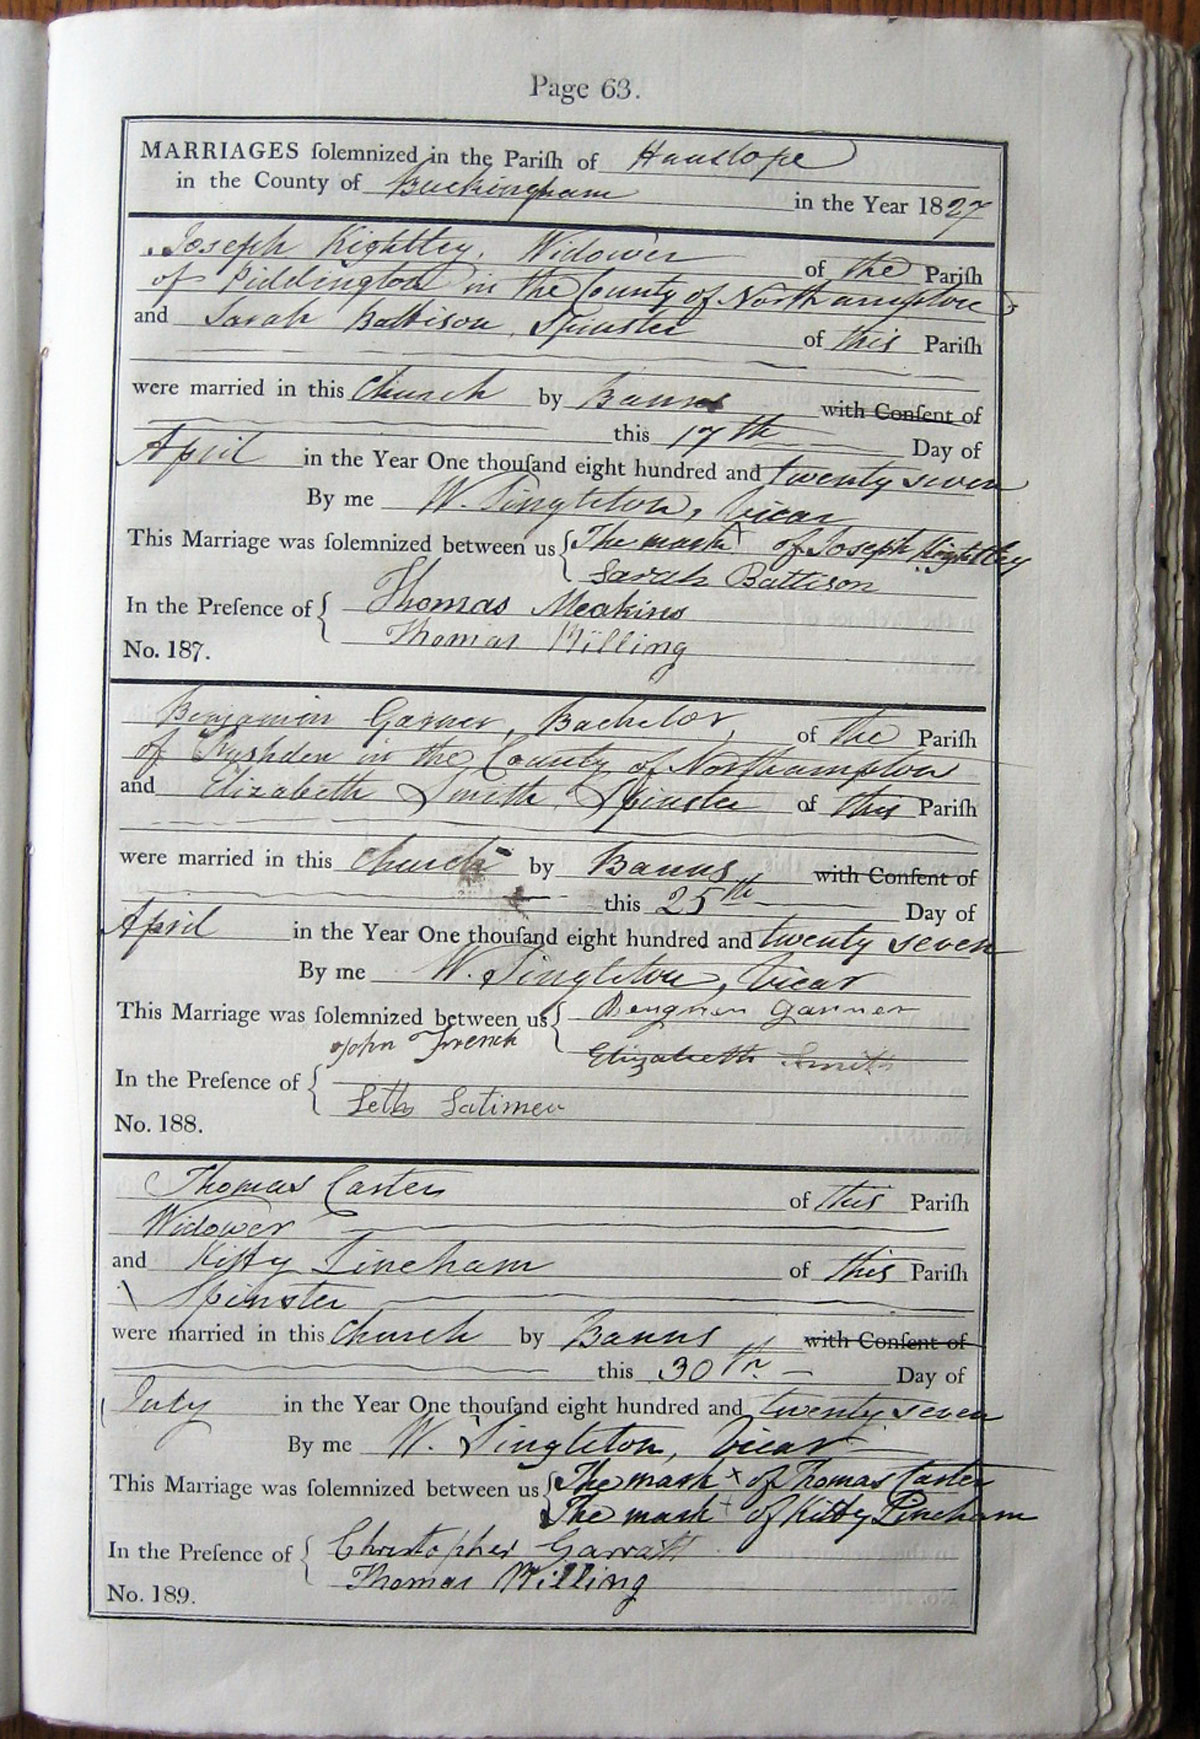 Page 63.
MARRIAGES ſolemnized in the Pariſh of Hanslope
in the County of Buckingham in the Year 1827
Joseph Kightley, Widower of the Pariſh
of Piddington in the County of Northampton
and Sarah Battison, Spinster of this Pariſh
were married in this Church by Banns with Conſent of
this 17th Day of
April in the Year One thouſand eight hundred and twenty seven
By me W. Singleton, Vicar
This Marriage was ſolemnized between us The mark X of Joseph Kightley
Sarah Battison
In the Preſence of Thomas Meakins
Thomas Killing
No. 187.
Benjamin Garner, Bachelor, of the Pariſh
of Rushden in the County of Northampton
and Elizabeth Smith, Spinster of this Pariſh
were married in this Church by Banns with Conſent of
this 25th Day of
April in the Year One thouſand eight hundred and twenty seven
By me W. Singleton, Vicar
This Marriage was ſolemnized between us Bengmen Garner
John French
Elizabeth Smith
In the Preſence of
Seth Latimer
No. 188.
Thomas Carter of this Pariſh
Widower
and Kitty Lineham of this Pariſh
Spinster
were married in this Church by Banns with Conſent of
this 30th. Day of
July in the Year One thouſand eight hundred and twenty seven
By me W. Singleton, Vicar
This Marriage was ſolemnized between us The mark x of Thomas Carter
The mark + of Kitty Lineham
In the Preſence of Christopher Garratt
Thomas Killing
No. 189.